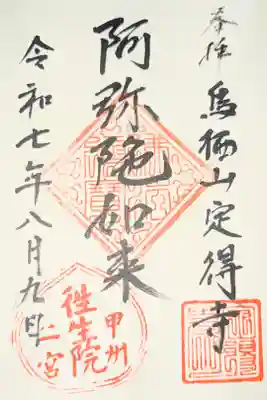 奉拝
烏栖山定得寺
阿弥陀如来
令和七年八月九日
往生院
甲州
一宮